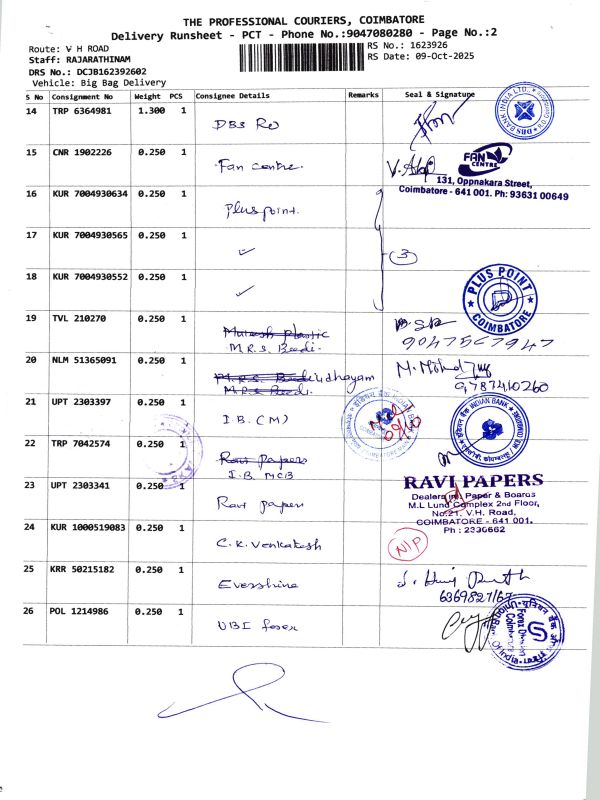 THE PROFESSIONAL COURIERS, COIMBATORE
Delivery Runsheet - PCT - Phone No.:9047080280 - Page No.:2
Route: V H ROAD
RS No.: 1623926
Staff: RAJARATHINAM
RS Date: 09-Oct-2025
DRS No.: DCJB162392602
Vehicle: Big Bag Delivery
S No Consignment No Weight PCS Consignee Details Remarks Seal & Signature
14 TRP 6364981 1.300 1
DBS
DBS BANK INDIA LTD.,
15 CNR 1902226 0.250 1
Fan centre.
FAN CENTRE
131, Oppnakara Street,
Coimbatore - 641 001. Ph: 93631 00649
16 KUR 7004930634 0.250 1
Pluspoint.
17 KUR 7004930565 0.250 1
✓
3
18 KUR 7004930552 0.250 1
✓
PLUS POINT
COIMBATORE
19 TVL 210270 0.250 1
M.R.S. Beedi.
9047567947
20 NLM 51365091 0.250 1
M.R.S. Beedi Udhayam
M.R.S. Beedi.
9787410260
21 UPT 2303397 0.250 1
I.B. (M)
INDIAN BANK
22 TRP 7042574 0.250 1
Ravi papers
I.B. MCB
23 UPT 2303341 0.250 1
Ravi papers
RAVI PAPERS
Dealers in: Paper & Boards
M.L Lund Complex 2nd Floor,
No.21. V.H. Road,
COIMBATORE - 641 001.
Ph : 2330662
24 KUR 1000519083 0.250 1
C.K. Venkatesh
N/P
25 KRR 50215182 0.250 1
Evershine
26 POL 1214986 0.250 1
UBI forex
Forex Division
Coimbatore
Union Bank Of India